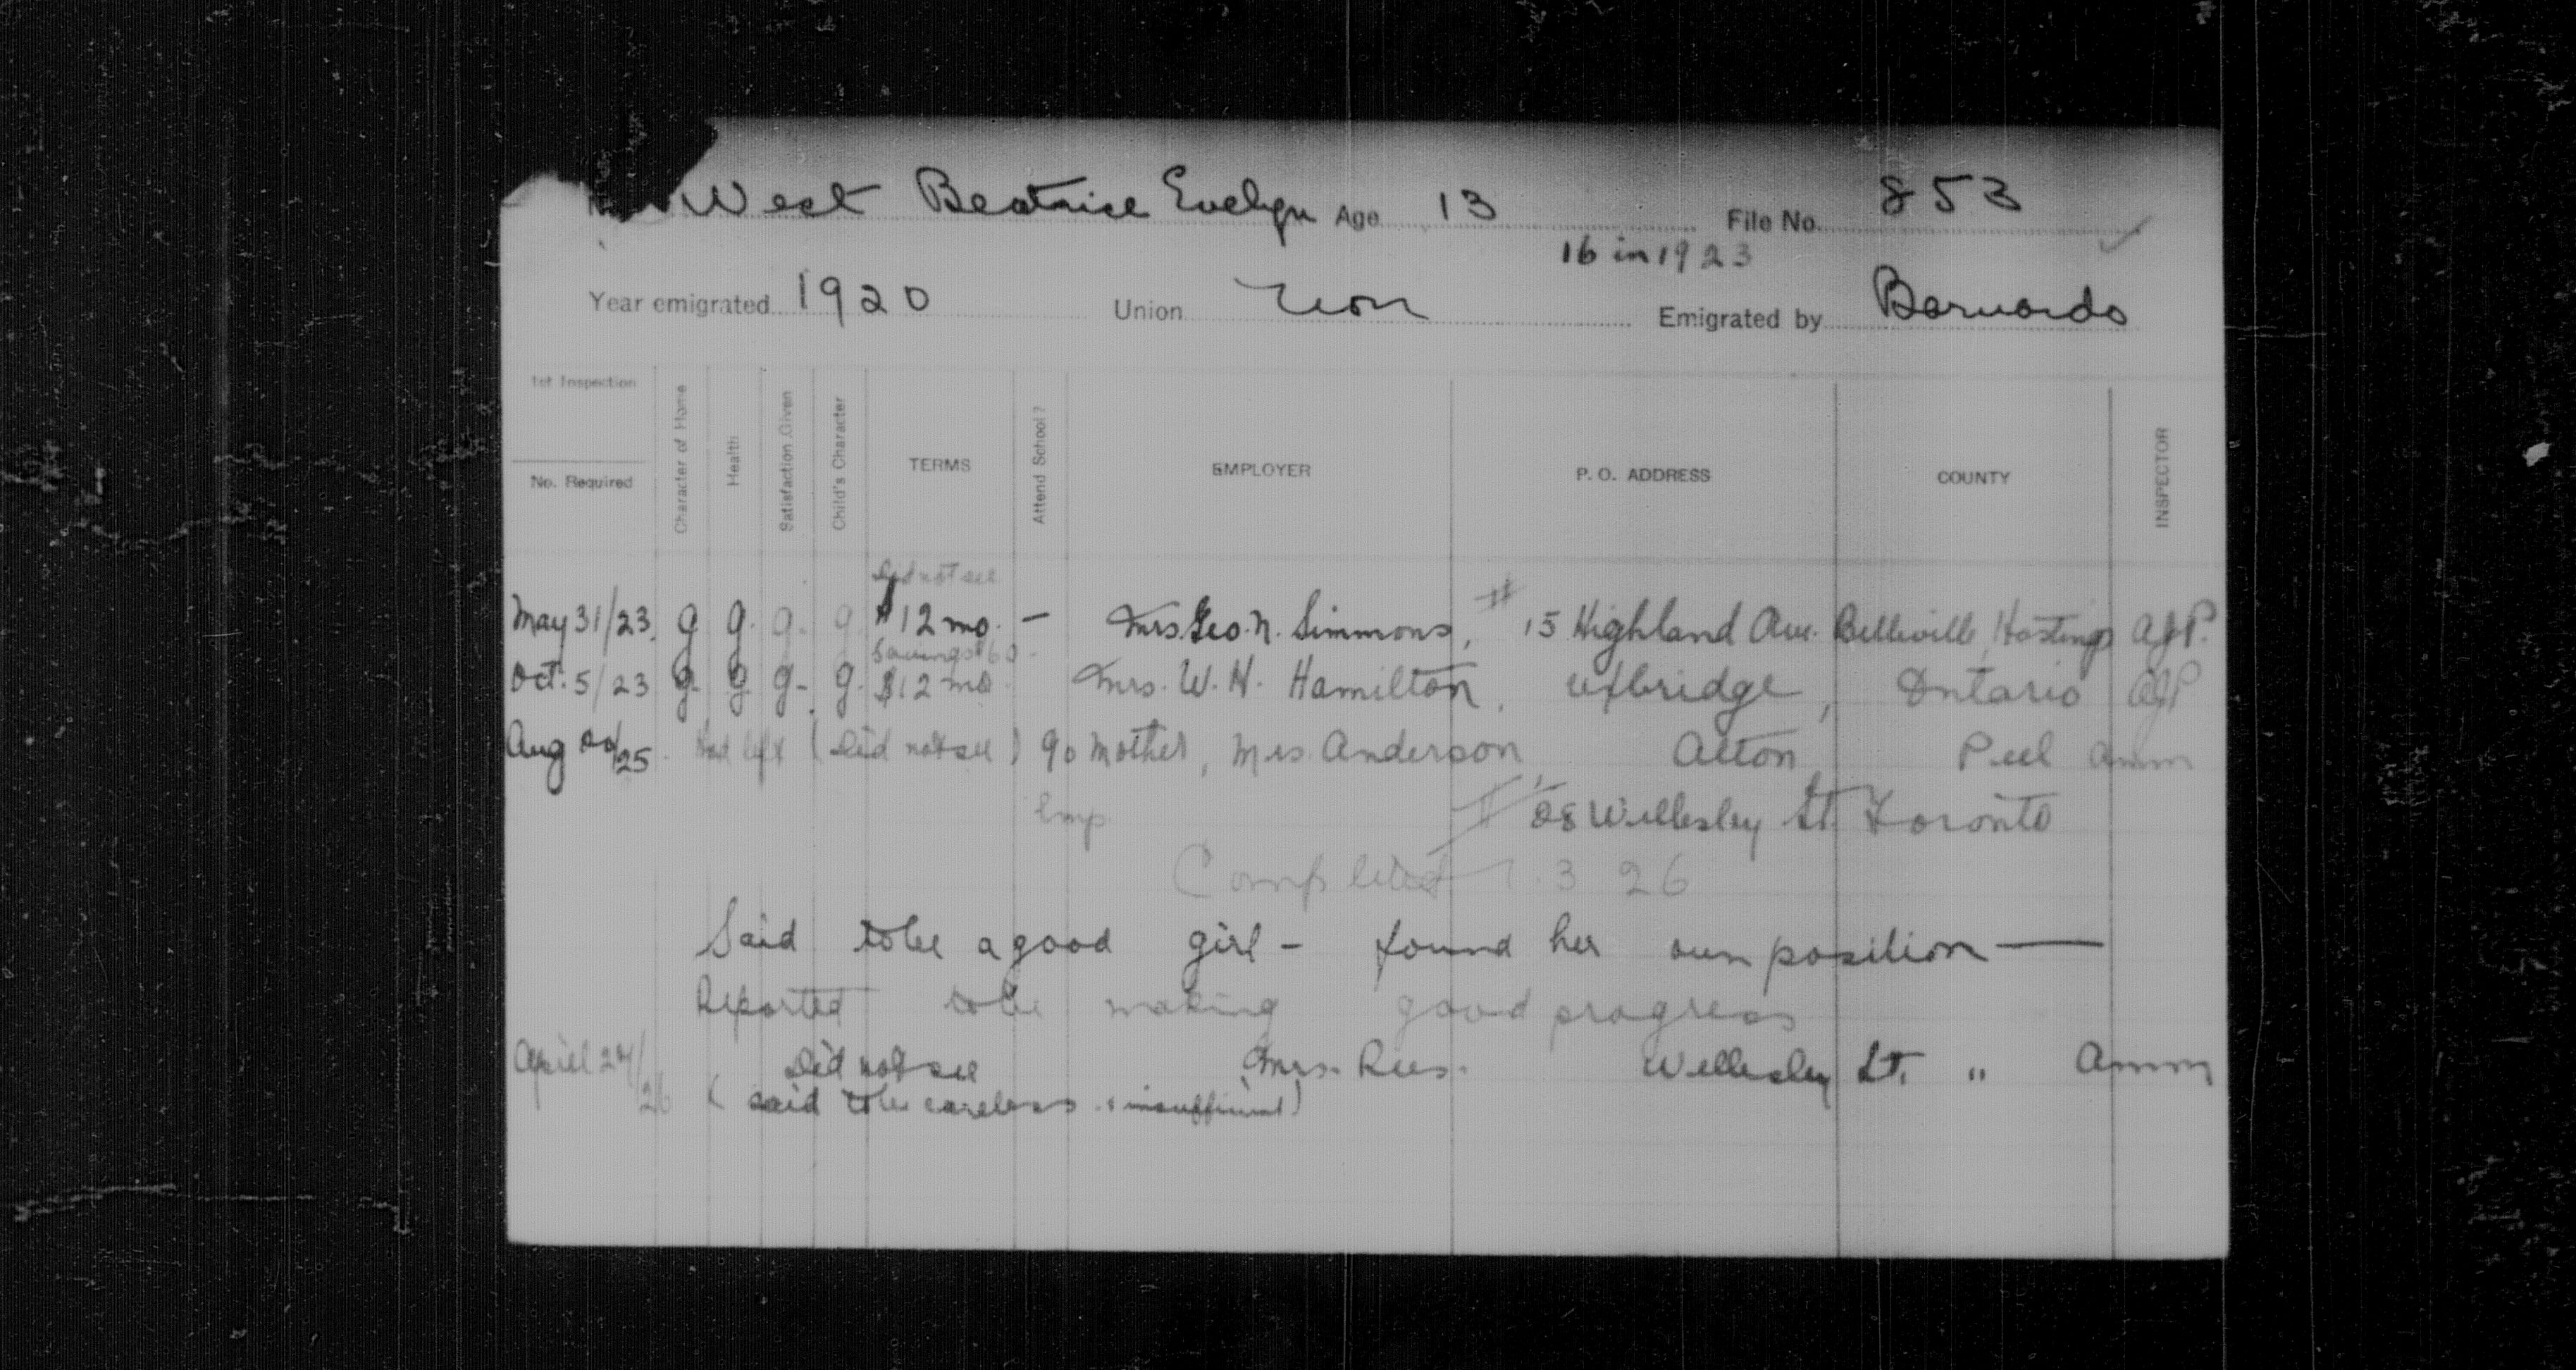 West Beatrice Evelyn Age 13 File No. 853
16 in 1923
Year emigrated 1920 Union Non Emigrated by Barnardo
1st Inspection
No. Required Character of Home Health Satisfaction Given Child's Character TERMS Attend School? EMPLOYER P. O. ADDRESS COUNTY INSPECTOR
Did not see
May 31/23. g g. g. g $12 mo. — Mrs Geo. N. Simmons, # 15 Highland Ave. Belleville, Hastings AJP.
Savings $60-
Oct. 5/23 g. g. g-. g. $12 mo. Mrs. W. H. Hamilton, Uxbridge, Ontario AJP
Aug /25. Had left (Did not see) c/o Mother, Mrs. Anderson, Alton Peel Amm
Emp # 28 Wellesley St. Toronto
Completed 1. 3 26
Said to be a good girl - found her own position —
Reported to be making good progress
April 24/26 Did not see Mrs. Rees. Wellesley St. " Amm
(said to be careless & insufficient)